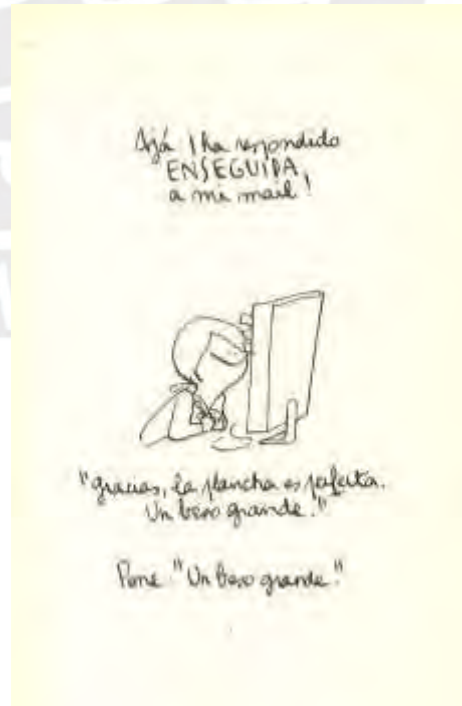 Ajá ! ha respondido
ENSEGUIDA
a mi mail !
"gracias, la plancha es perfecta.
Un beso grande."
Pone "Un beso grande."